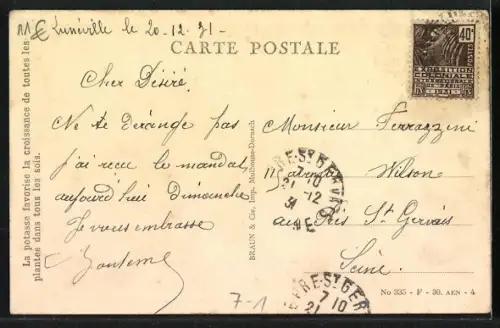 11€ Lunéville le 20-12.31-
CARTE POSTALE
Cher Désiré,
Ne te dérange pas
j'ai reçu le mandat
aujourd'hui Dimanche
Je vous embrasse
Monsieur Ferrazzini
Wilson
St Gervais
Seine
La potasse favorise la croissance de toutes les
plantes dans tous les sols.
BRAUN & Cie, Imp. Mulhouse-Dornach
40c
POSTES
EXPOSITION
COLONIALE
INTERNATIONALE
PARIS
1931
7-10
21-12
31
7 10
21
7-1
No 335 - F - 30. AEN - 4